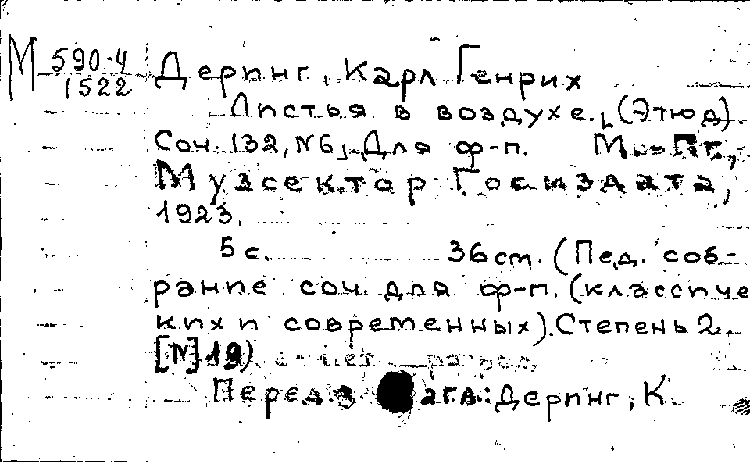 М 590-4
1522
Деринг, Карл Генрих
Листья в воздухе. (Этюд).
Соч. 132, №6, Для ф-п. М.-Пг.,
Музсектор Госиздата,
1923.
5 с. 36 см. (Пед. соб-
рание соч. для ф-п. (классиче
ких и современных). Степень 2.
[№] 19)
Перед загл.: Деринг, К.